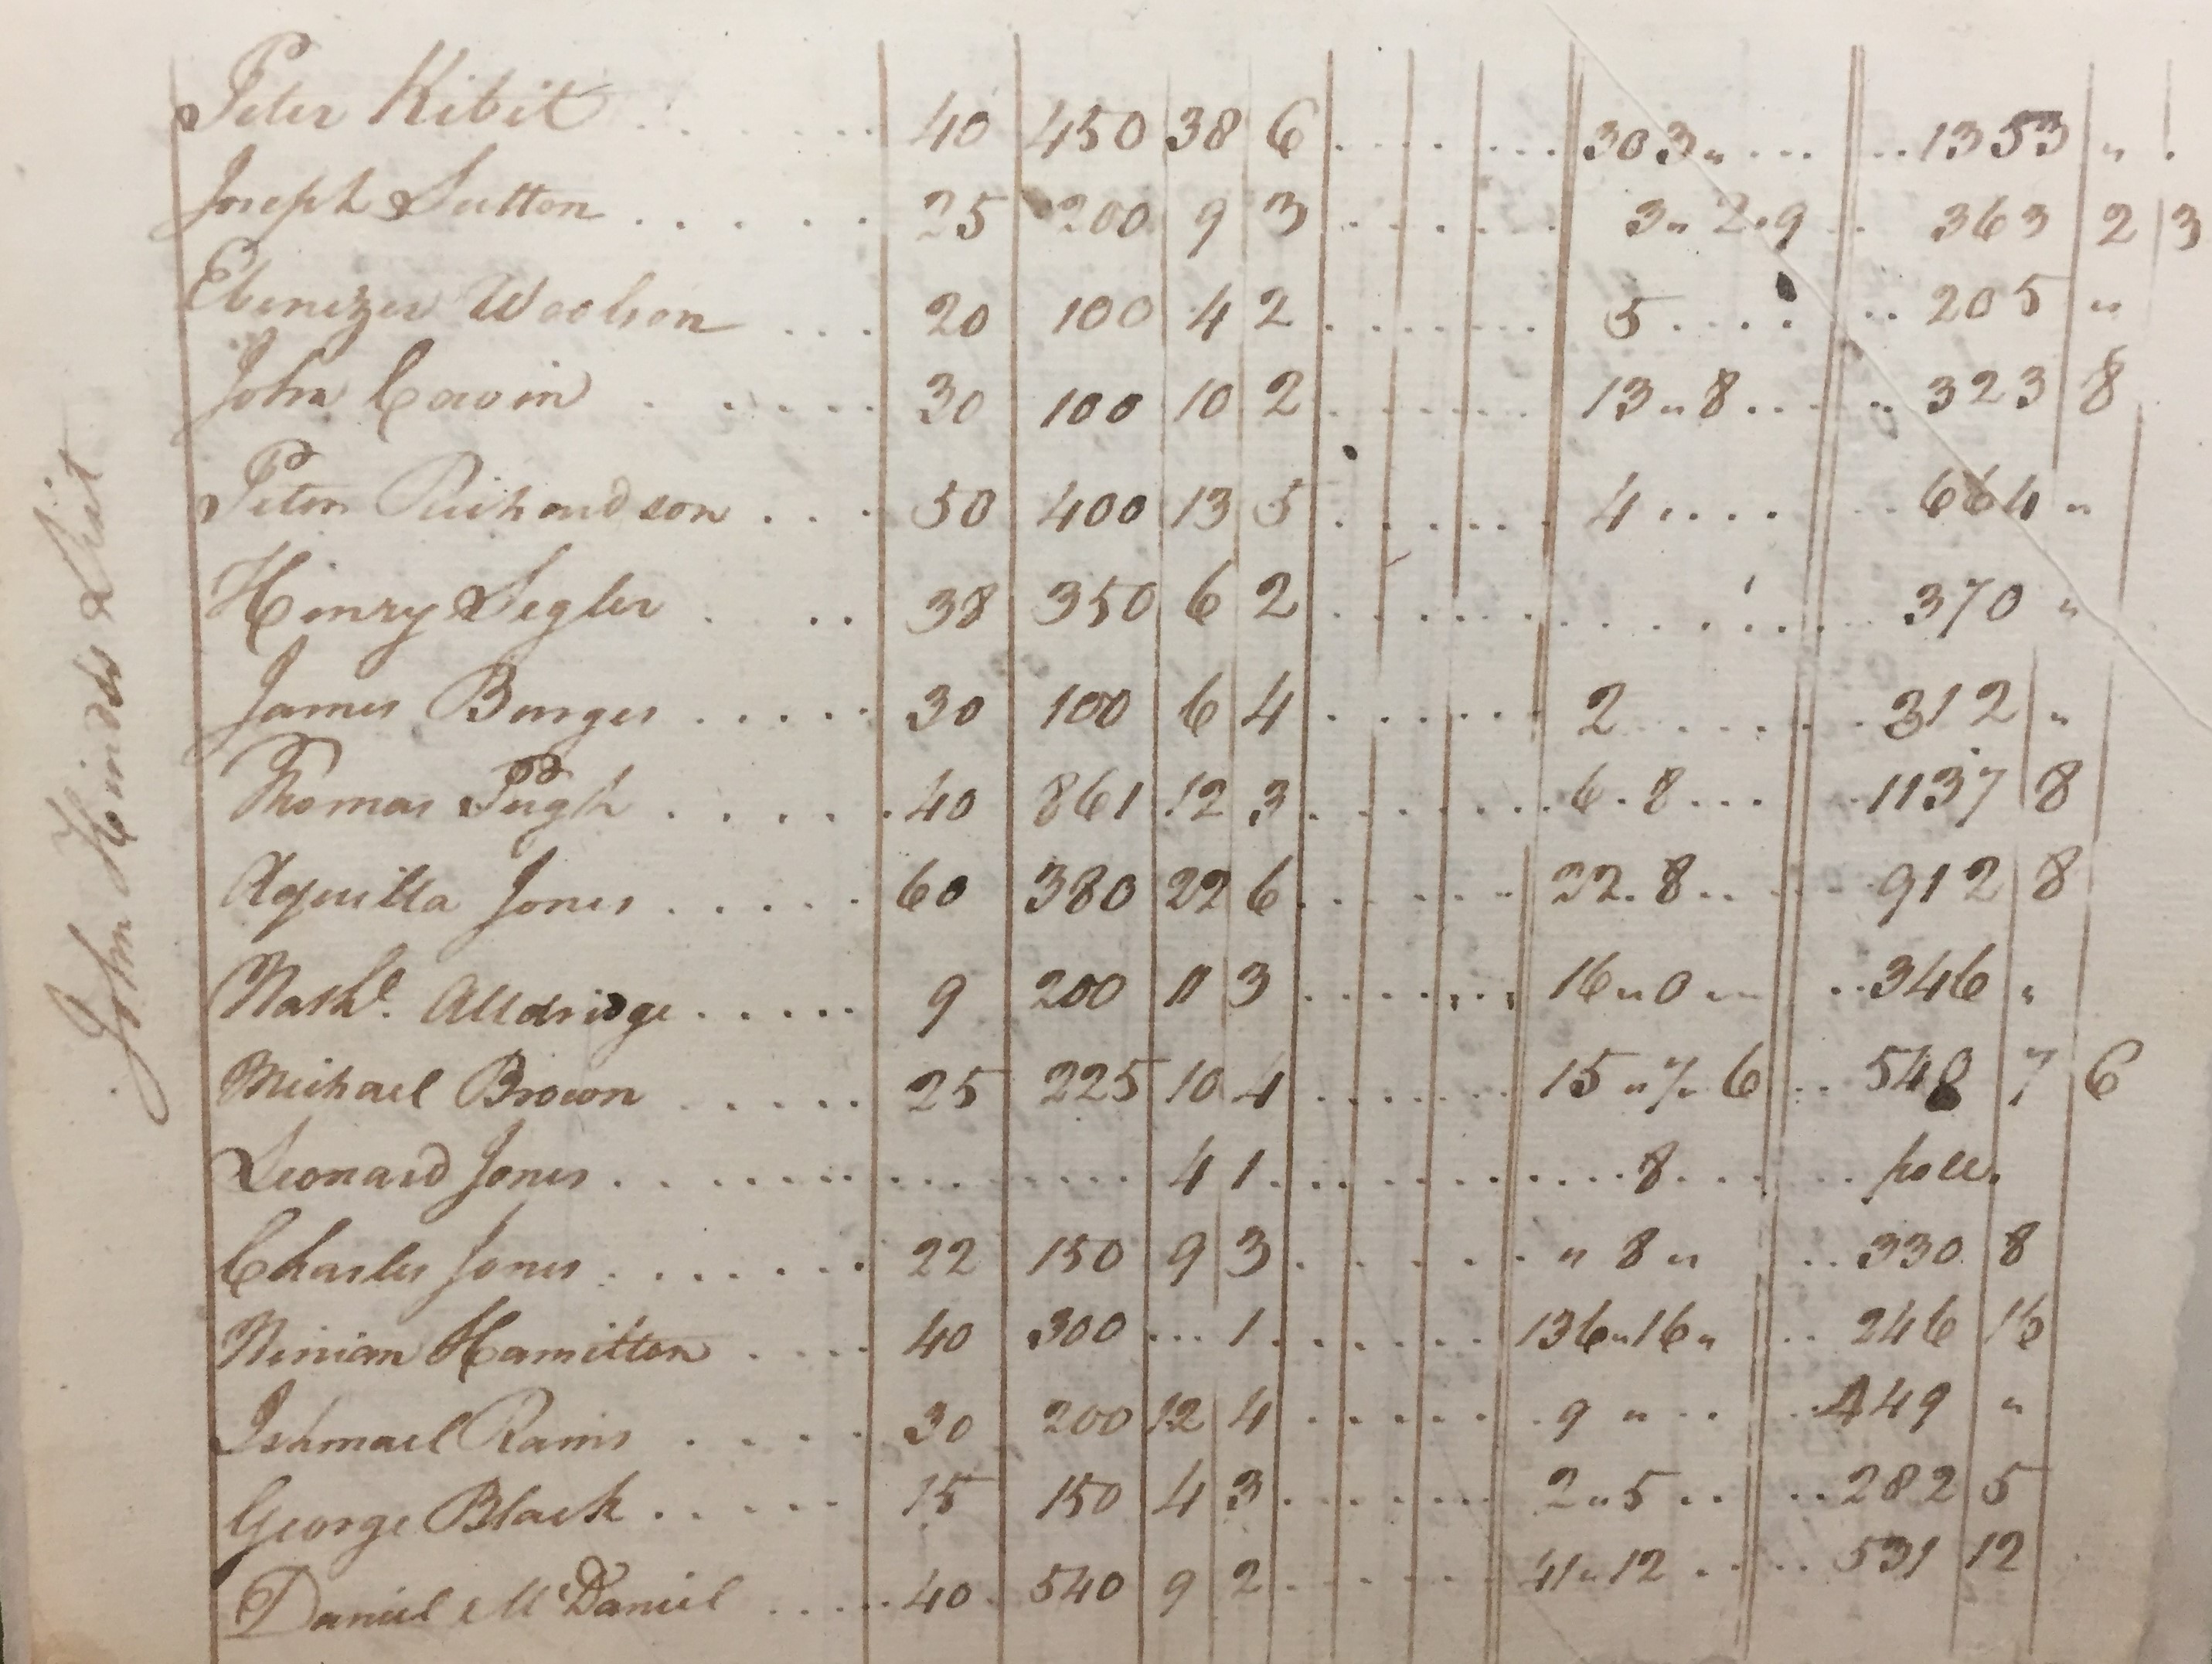 John Hinds's List
Peter Kibit 40 450 38 6 303 " 1353 "
Joseph Sutton 25 200 9 3 3 " 2 . 9 363 2 3
Ebenezer Woolson 20 100 4 2 5 205 "
John Cowin 30 100 10 2 13 " 8 323 8
Peter Richardson 50 400 13 5 4 664 "
Henry Segler 38 350 6 2 370 "
James Burges 30 100 6 4 2 312 "
Thomas Pugh 40 861 12 3 6 . 8 1137 8
Aquilla Jones 60 380 22 6 22 . 8 912 8
Nathl. Alldridge 9 200 11 3 16 " 0 346 "
Michael Brown 25 225 10 4 15 " 7 " 6 548 7 6
Leonard Jones 4 1 8 poll.
Charles Jones 22 150 9 3 " 8 " 330 8
Ninian Hamilton 40 300 ... 1 136 " 16 " 246 16
Ishmael Rains 30 200 12 4 9 " 449 "
George Black 15 150 4 3 2 " 5 282 5
Daniel McDaniel 40 540 9 2 41 " 12 531 12